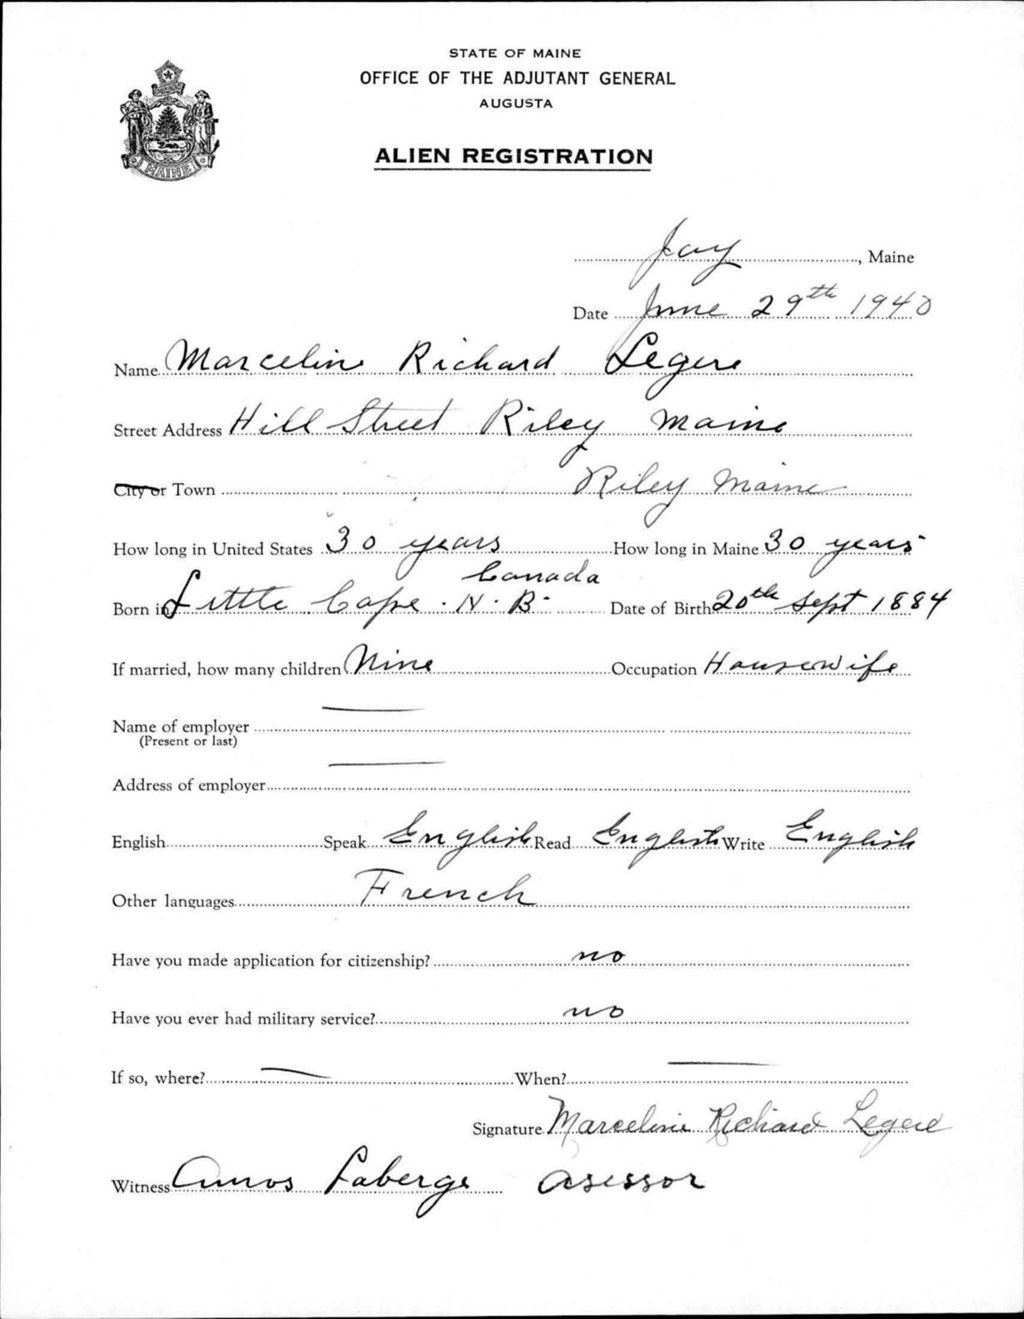 STATE OF MAINE
OFFICE OF THE ADJUTANT GENERAL
AUGUSTA
ALIEN REGISTRATION
MAINE
Jay, Maine
Date June 29th 1940
Name Marceline Richard Legere
Street Address Hill Street Riley Maine
City or Town Riley Maine
How long in United States 30 years How long in Maine 30 years
Canada
Born in Little Cape. N. B. Date of Birth 20th Sept 1884
If married, how many children Nine Occupation Housewife
Name of employer
(Present or last)
Address of employer
English Speak English Read English Write English
Other languages French
Have you made application for citizenship? no
Have you ever had military service? no
If so, where? When?
Signature Marceline Richard Legere
Witness Amos Laberge Asessor